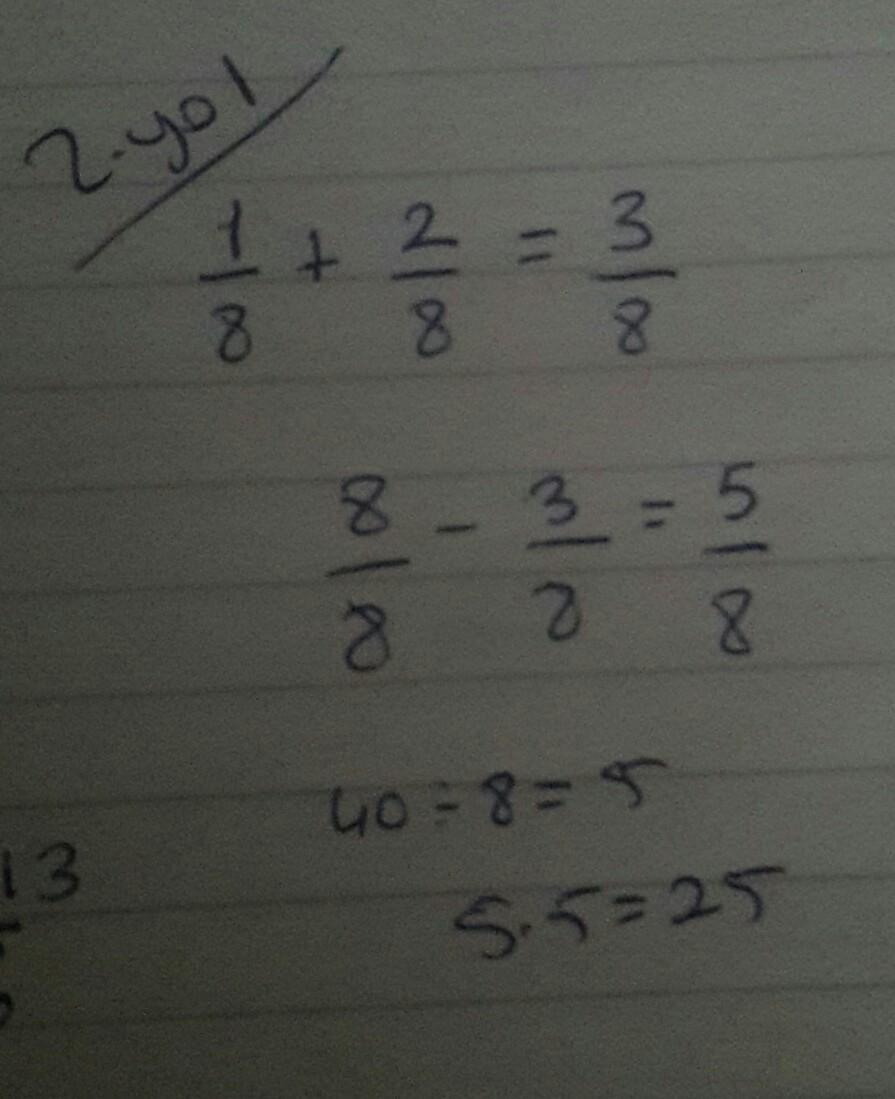 2.yol
1/8 + 2/8 = 3/8
8/8 - 3/8 = 5/8
40÷8=5
13
5.5=25